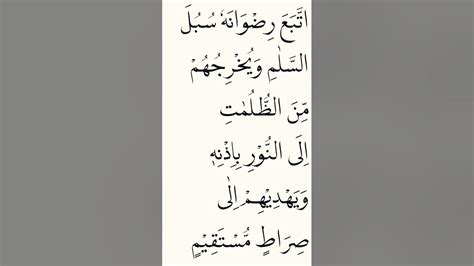 اتَّبَعَ رِضْوَانَهٗ سُبُلَ
السَّلٰمِ وَيُخْرِجُهُمْ
مِّنَ الظُّلُمٰتِ
اِلَى النُّوْرِ بِاِذْنِهٖ
وَيَهْدِيْهِمْ اِلٰى
صِرَاطٍ مُّسْتَقِيْمٍ